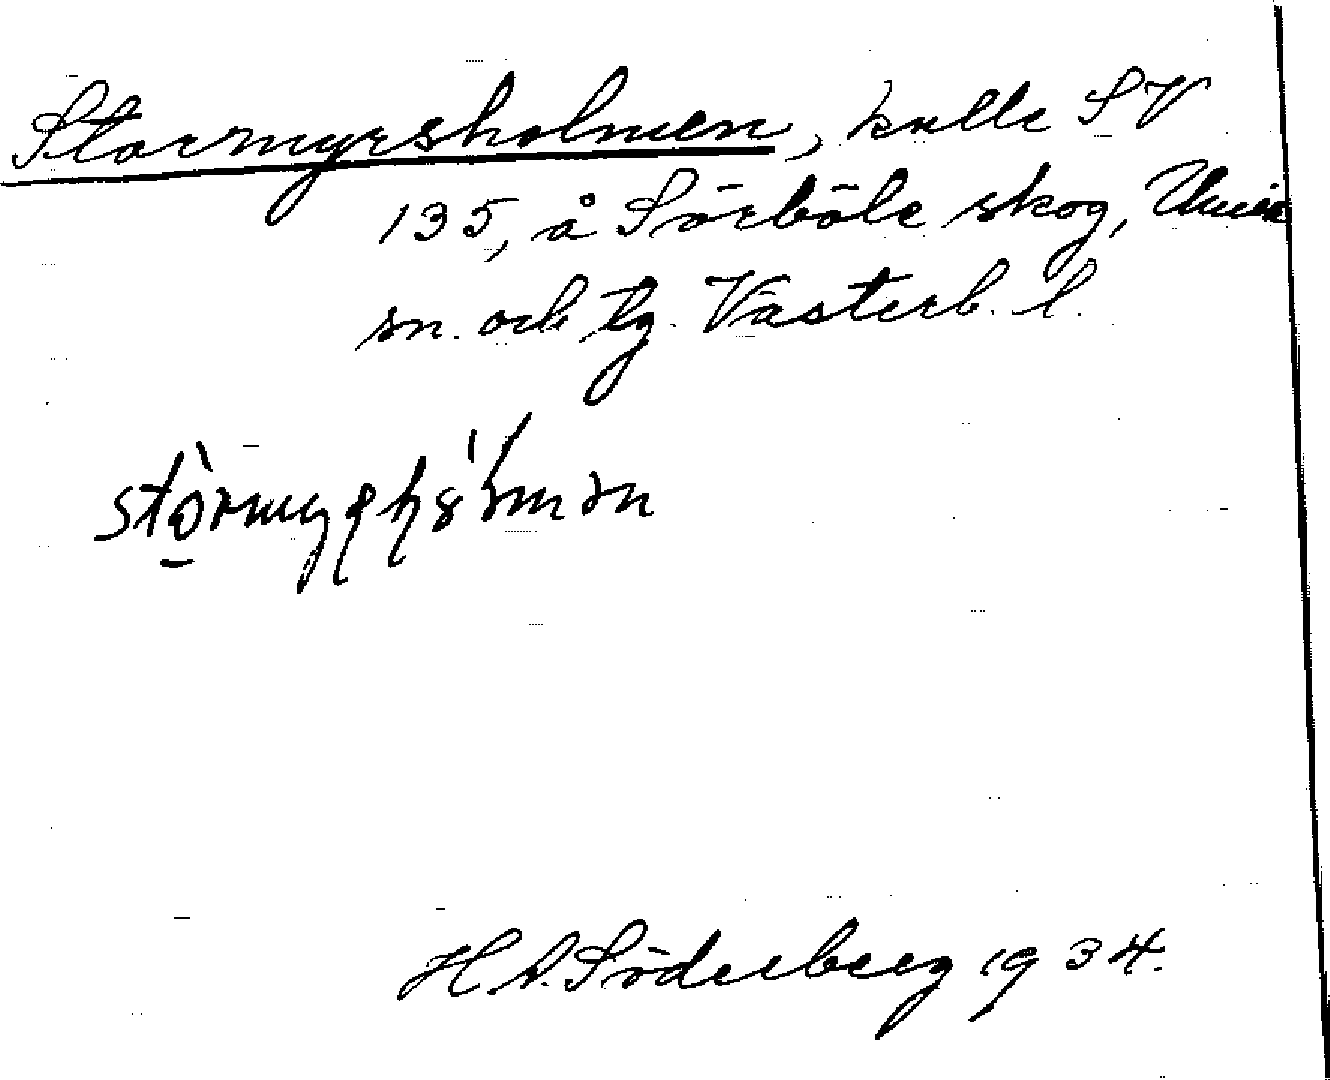 Stormyrsholmen, kulle SV
135, å Sörböle skog, Umeå
sn. och tg. Västerb. l.
H. D. Söderberg 1934.